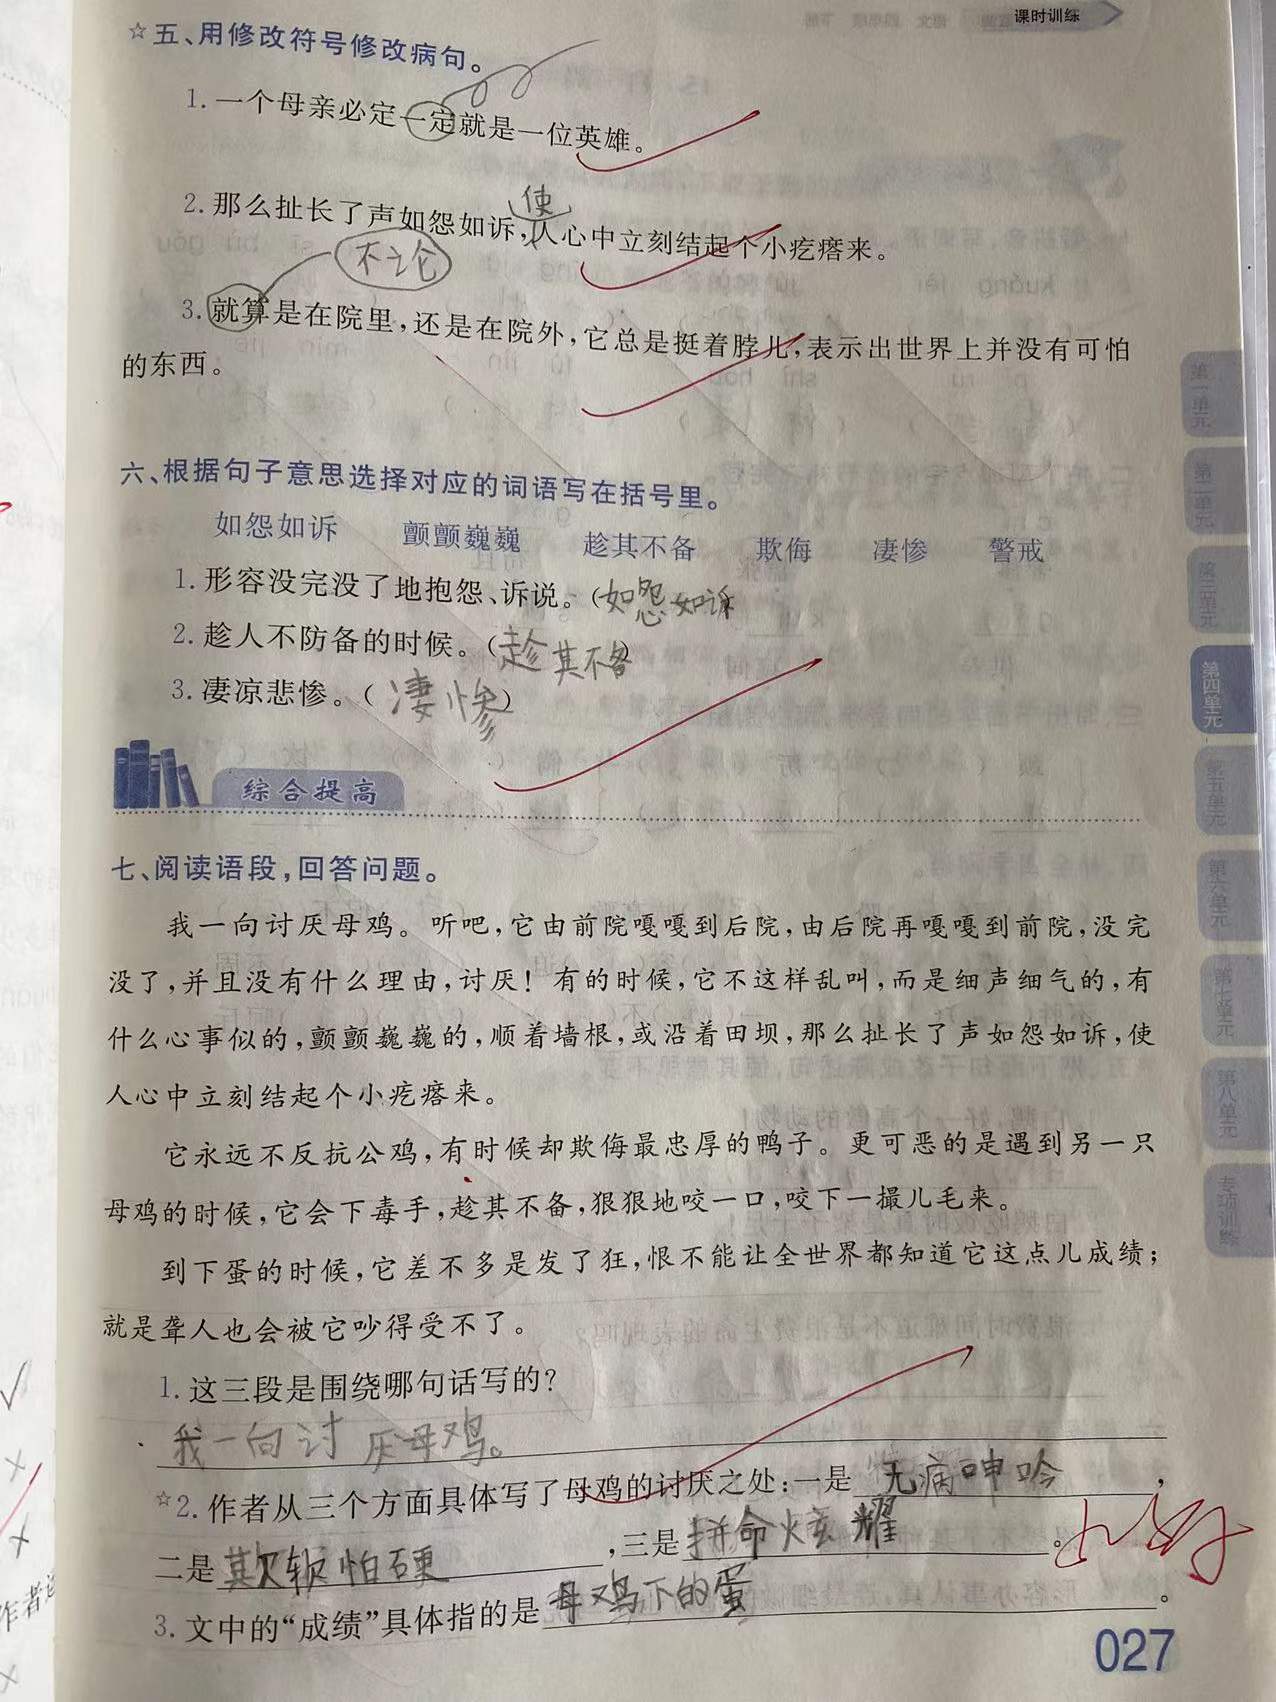 课时训练
☆五、用修改符号修改病句。
1.一个母亲必定一定就是一位英雄。
使
2.那么扯长了声如怨如诉,人心中立刻结起个小疙瘩来。
不论
3.就算是在院里,还是在院外,它总是挺着脖儿,表示出世界上并没有可怕
的东西。
六、根据句子意思选择对应的词语写在括号里。
如怨如诉 颤颤巍巍 趁其不备 欺侮 凄惨 警戒
1.形容没完没了地抱怨、诉说。(如怨如诉
2.趁人不防备的时候。(趁其不备)
3.凄凉悲惨。(凄惨)
综合提高
七、阅读语段,回答问题。
我一向讨厌母鸡。听吧,它由前院嘎嘎到后院,由后院再嘎嘎到前院,没完
没了,并且没有什么理由,讨厌!有的时候,它不这样乱叫,而是细声细气的,有
什么心事似的,颤颤巍巍的,顺着墙根,或沿着田坝,那么扯长了声如怨如诉,使
人心中立刻结起个小疙瘩来。
它永远不反抗公鸡,有时候却欺侮最忠厚的鸭子。更可恶的是遇到另一只
母鸡的时候,它会下毒手,趁其不备,狠狠地咬一口,咬下一撮儿毛来。
到下蛋的时候,它差不多是发了狂,恨不能让全世界都知道它这点儿成绩;
就是聋人也会被它吵得受不了。
1.这三段是围绕哪句话写的?
我一向讨厌母鸡。
☆2.作者从三个方面具体写了母鸡的讨厌之处:一是无病呻吟,
二是欺软怕硬,三是拼命炫耀。
3.文中的“成绩”具体指的是母鸡下的蛋。
027
第一单元
第二单元
第三单元
第四单元
第五单元
第六单元
第七单元
第八单元
专项训练